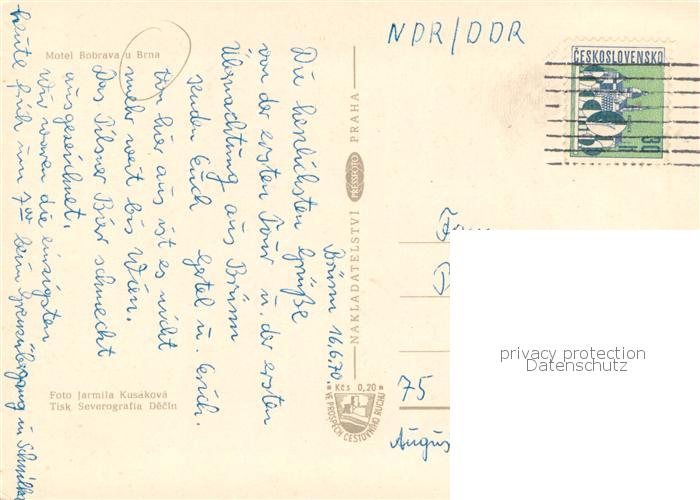 Motel Bobrava u Brna
NDR/DDR
ČESKOSLOVENSKO
30
Brünn 16.6.70.
Die herzlichsten Grüße
von der ersten Tour u. der ersten
Übernachtung aus Brünn
senden Euch Gertel u. Erich.
Von hier aus ist es nicht
mehr weit bis Wien.
Das Pilsner Bier schmeckt
ausgezeichnet.
Wir waren die einzigsten
heute früh um 7 00 beim Grenzübergang in Schmilka
NAKLADATELSTVÍ PRESSFOTO PRAHA
Kčs 0,20
VE PROSPĚCH CESTOVNÍHO RUCHU
Foto Jarmila Kusáková
Tisk Severografia Děčín
75
Augus
privacy protection
Datenschutz